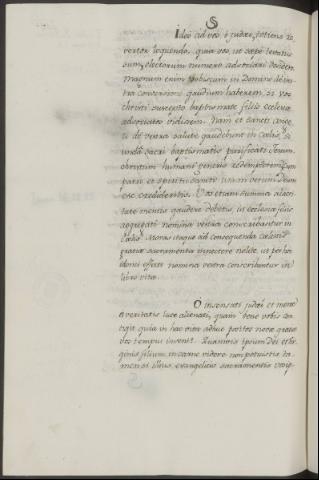 Ideo ad vos, o judæi, totiens re
vertor loquendo, quia vos, ut sæpe testatus
sum, electorum numero adscribi desidero
magnum enim vobiscum in Domino de ves
tra conversione gaudium haberem, si vos
christi suscepto baptismate filiis ecclesiæ
adscriptos viderem. Nam et sancti angeli
de vestra salute gaudebunt in cælis, si
unda sacri baptismatis purificati Jesum
christum humani generis redemptorem cum
patre et spiritu sancto unum verum Deum
esse credideritis. Vos etiam summa alacri
tate mentis gaudere debetis, ut ecclesiæ filiis
aggregati nomina vestra conscribantur in
cælis. Moras itaque ad consequenda cælestis
gratiæ sacramenta innectere nolite, ut per ba
donis effecti nomina vestra conscribantur in
libro vitæ.
O insensati judæi et mente
a veritatis luce alienati, quam bene vobis con
tigit quia in hac vita adhuc positos novæ gratiæ
vos tempus invenit. Quamvis ipsum dei et vir
ginis filium in carne videre non potuistis ta
men si illius evangelicis sacramentis